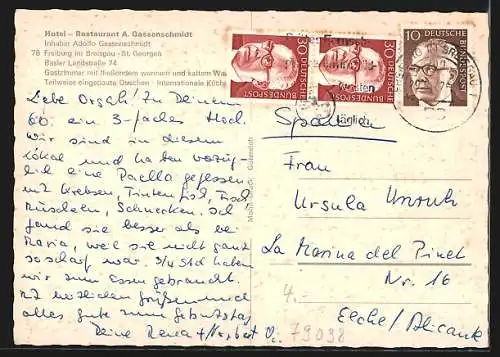 Hotel – Restaurant A. Gassenschmidt
Inhaber Adolfo Gassenschmidt
78 Freiburg im Breisgau - St. Georgen
Basler Landstraße 74
Gastzimmer mit fließendem warmem und kaltem Wa
Teilweise eingebaute Duschen — Internationale Küche
Liebe Orgali! Zu Deinem
60. ein 3-faches Hoch.
Wir sind in diesem
Lokal und haben vorzüg-
lich eine Paella gegessen
mit Krebsen, Tintenfisch, Fisch,
Muscheln, Schnecken. Ich
fand sie besser als bei
Maria, weil sie nicht ganz
so scharf war. 3/4 Std haben
wir zum essen gebraucht.
Mit herzlichen Grüßen und
alles gute zum Geburtstag
Deine Rena + Herbert
30 DEUTSCHE BUNDESPOST
30 DEUTSCHE BUNDESPOST
10 DEUTSCHE BUNDESPOST
täglich
Spanien
Frau
Ursula Unruh
La Marina del Pinet
Nr. 16
Elche/Alicante
4.-
79098